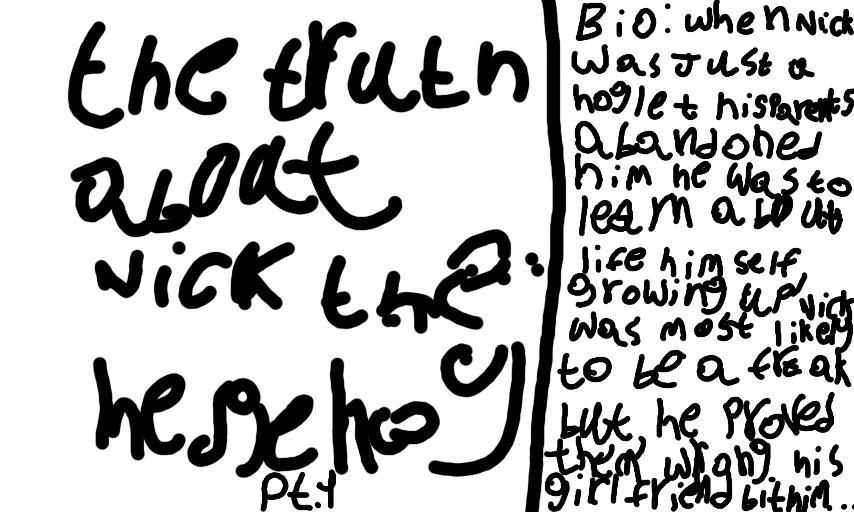 the truth
about
Nick the:
hegehog
Pt.1
Bio: when Nick
was Just a
hoglet his Parents
abandoned
him he was to
learn about
life himself
growing up Nick
was most likely
to be a freak
but he Proved
them wrong. his
girlfriend bit him...